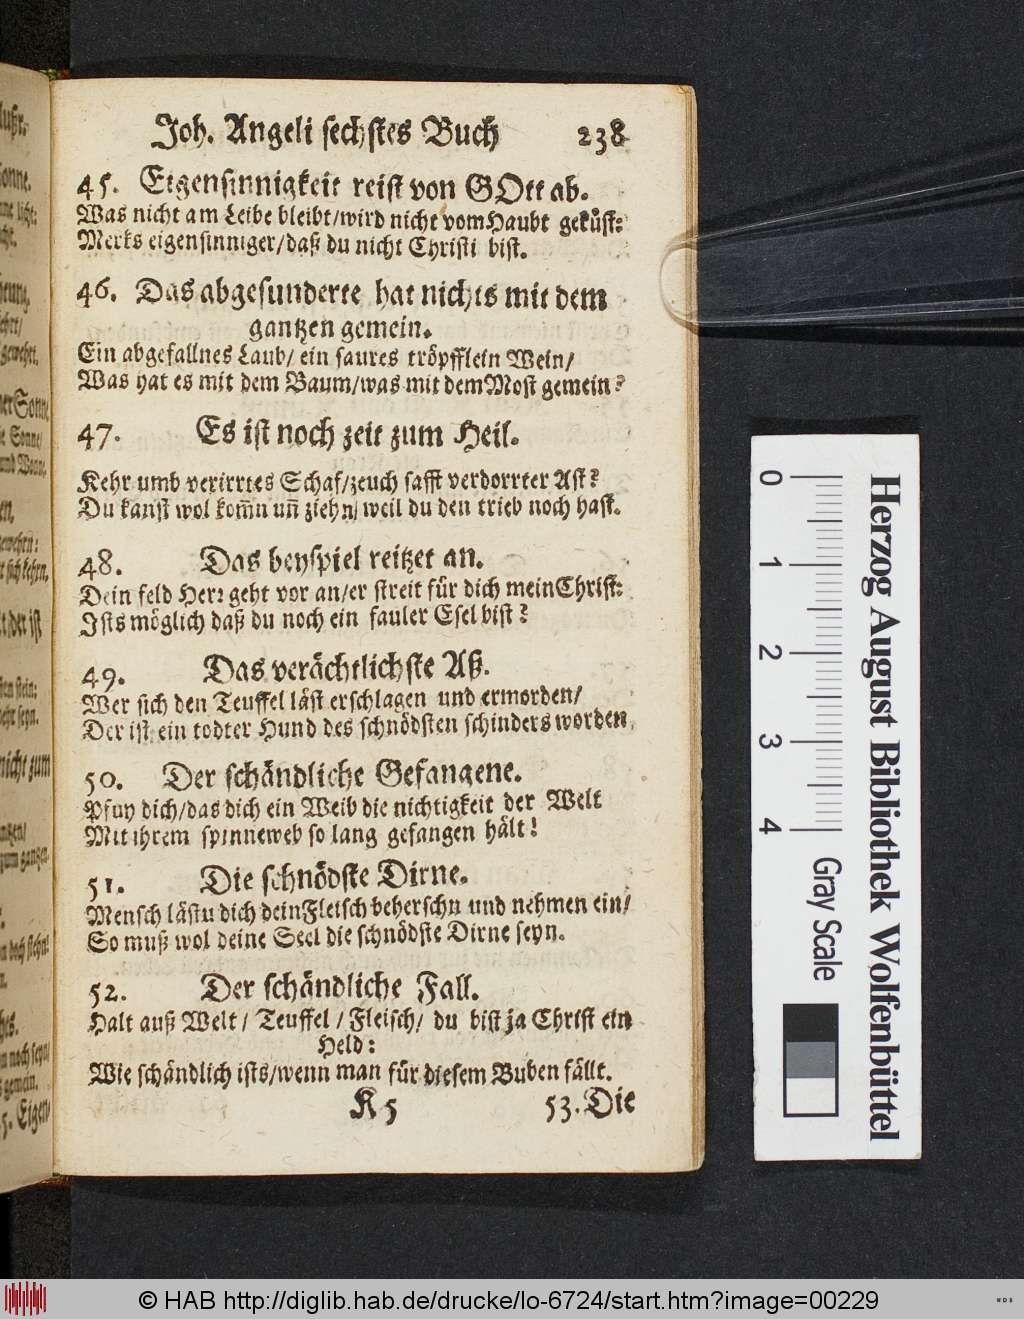 Joh. Angeli sechstes Buch 238
45. Eigensinnigkeit reist von GOtt ab.
Was nicht am Leibe bleibt/wird nicht vom Haubt geküst:
Merks eigensinniger/daß du nicht Christi bist.
46. Das abgesunderte hat nichts mit dem
gantzen gemein.
Ein abgefallnes Laub/ ein saures tröpfflein Wein/
Was hat es mit dem Baum/was mit dem Most gemein?
47. Es ist noch zeit zum Heil.
Kehr umb verirrtes Schaf/zeuch safft verdorrter Ast?
Du kanst wol kom̄n un̄ ziehn/weil du den trieb noch hast.
48. Das beyspiel reitzet an.
Dein feld Herr geht vor an/er streit für dich mein Christ:
Ists möglich daß du noch ein fauler Esel bist?
49. Das verächtlichste Aß.
Wer sich den Teuffel läst erschlagen und ermorden/
Der ist ein todter Hund des schnödsten schinders worden.
50. Der schändliche Gefangene.
Pfuy dich/das dich ein Weib die nichtigkeit der Welt
Mit ihrem spinneweb so lang gefangen hält!
51. Die schnödste Dirne.
Mensch lästu dich dein Fleisch beherschn und nehmen ein/
So muß wol deine Seel die schnödste Dirne seyn.
52. Der schändliche Fall.
Halt auß Welt/ Teuffel/ Fleisch/ du bist ja Christ ein
Held:
Wie schändlich ists/wenn man für diesem Buben fällt.
K 5 53. Die
0 1 2 3 4 Gray Scale
Herzog August Bibliothek Wolfenbüttel
© HAB http://diglib.hab.de/drucke/lo-6724/start.htm?image=00229